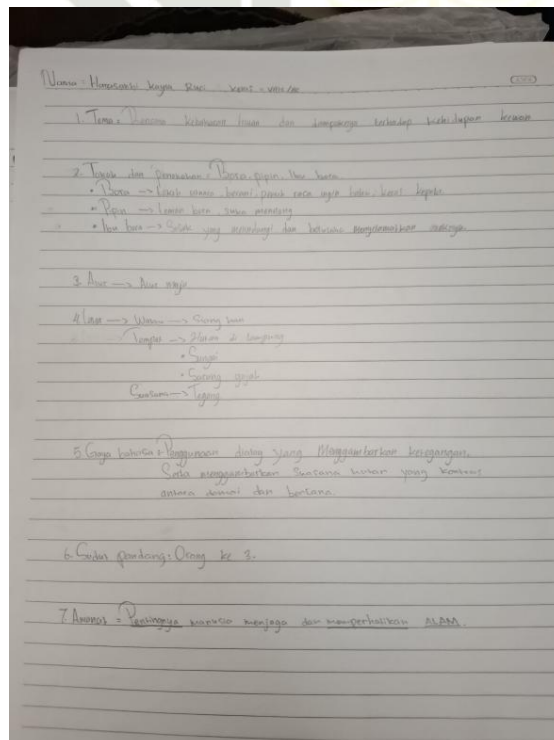 Nama : Kayra kelas =
1. Tema : Bencana kebakaran hutan dan dampaknya terhadap kehidupan hewan
2. Tokoh dan Penokohan : Bora, pipin, Ibu bora
• Bora → anak berani, penuh rasa ingin keras kepala
• Pipin → teman bora, suka menolong
• Ibu bora → Sosok yang melindungi dan berusaha menyelamatkan anaknya
3. Alur → Alur maju
4. Latar → Waktu → Siang hari
Tempat → Hutan di lampung
• Sungai
• Sarang gajah
Suasana → Tegang
5. Gaya bahasa : Penggunaan dialog yang Menggambarkan ketegangan.
Serta menggambarkan Suasana hutan yang kontras
antara damai dan bencana.
6. Sudut pandang : Orang ke 3.
7. Amanat = Pentingnya manusia menjaga dan memperhatikan ALAM.